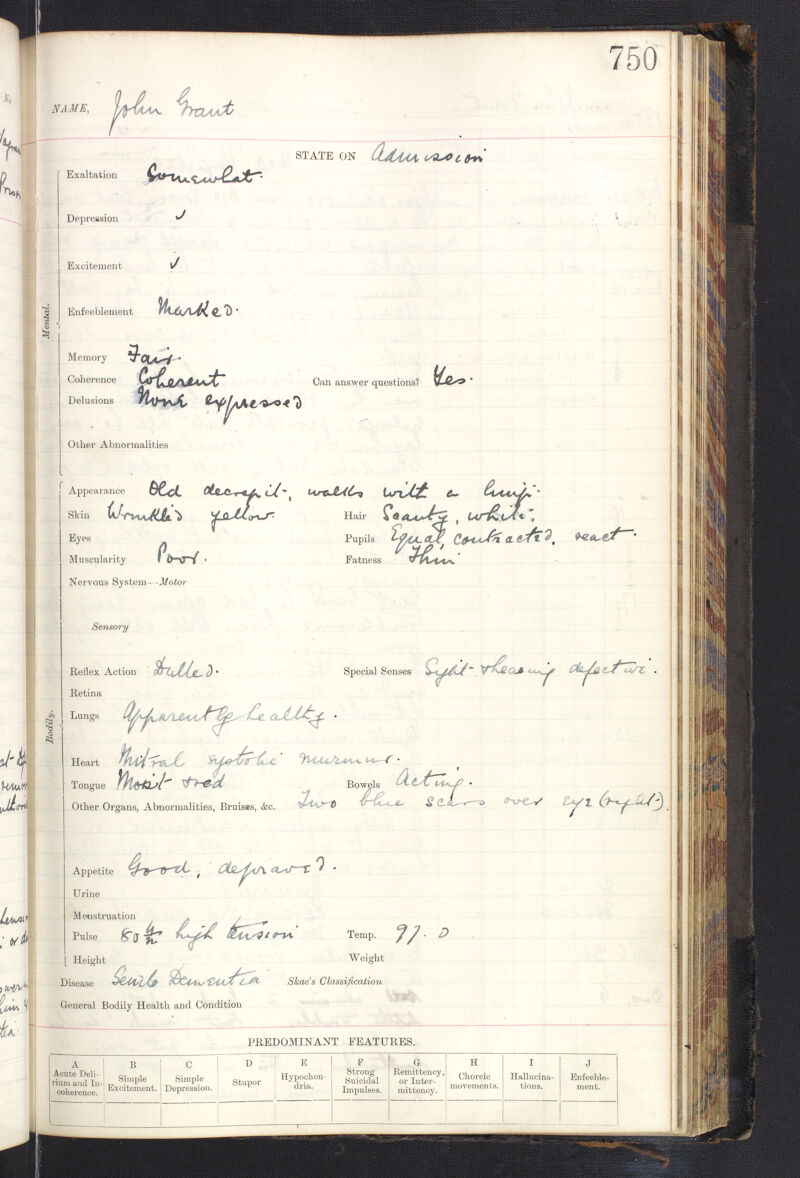 750
NAME, John Grant
STATE ON Admission
Mental.
Exaltation Somewhat.
Depression ✓
Excitement ✓
Enfeeblement Marked.
Memory Fair.
Coherence Coherent Can answer questions? Yes.
Delusions None expressed
Other Abnormalities
Bodily.
Appearance Old decrepit, walks with a limp.
Skin Wrinkled yellow. Hair Scanty, white.
Eyes Pupils Equal, contracted, react.
Muscularity Poor. Fatness Thin
Nervous System—Motor
Sensory
Reflex Action Dulled. Special Senses Sight + hearing defective.
Retina
Lungs Apparently healthy.
Heart Mitral systolic murmur.
Tongue Moist + red Bowels Acting.
Other Organs, Abnormalities, Bruises, &c. Two blue scars over eye (right).
Appetite Good, depraved.
Urine
Menstruation
Pulse 80 high tension Temp. 97.0
Height Weight
Disease Senile Dementia Skae's Classification
General Bodily Health and Condition
PREDOMINANT FEATURES.
A B C D E F G H I J
Acute Deli- Simple Simple Stupor Hypochon- Strong Remittency, Choreic Hallucina- Enfeeble-
rium and In- Excitement. Depression. dria. Suicidal or Inter- movements. tions. ment.
coherence. Impulses. mittency.